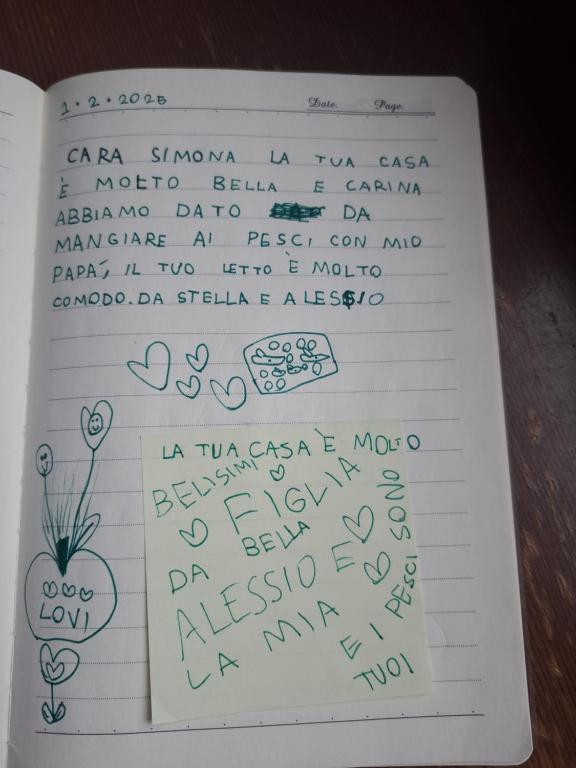 1.2.2025
Date. Page.
CARA SIMONA LA TUA CASA
È MOLTO BELLA E CARINA
ABBIAMO DATO DA
MANGIARE AI PESCI CON MIO
PAPÀ, IL TUO LETTO È MOLTO
COMODO. DA STELLA E ALESSIO
LA TUA CASA È MOLTO
BELLA
E I TUOI
PESCI SONO
BELISIMI
DA
ALESSIO E
LA MIA
FIGLIA
LOVI